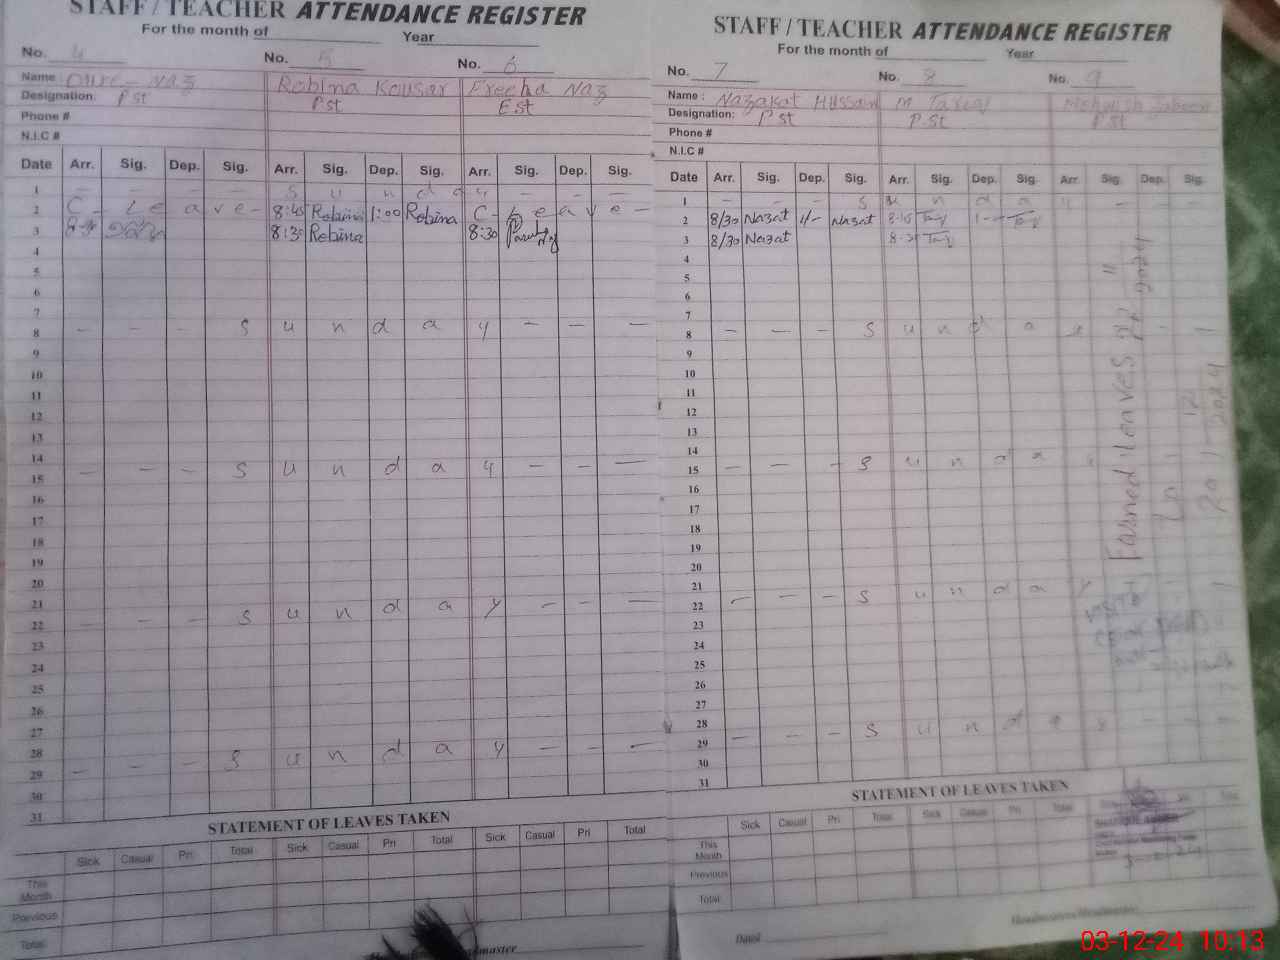 STAFF / TEACHER ATTENDANCE REGISTER
For the month of
Year
No. 4
No. 5
No. 6
Name : Naz
Robina Kousar
Freeha Naz
Designation: Pst
Pst
Est
Phone #
N.I.C #
Date Arr. Sig. Dep. Sig. Arr. Sig. Dep. Sig. Arr. Sig. Dep. Sig.
1 - - - - S u n d a y - - -
2 C - Leave - 8:45 Robina 1:00 Robina C - Leave -
3 8:30 8:30 Robina 8:30
4
5
6
7
8 - - - S u n d a y - - -
9
10
11
12
13
14
15 - - - S u n d a y - - -
16
17
18
19
20
21
22 - - - S u n d a y - - -
23
24
25
26
27
28
29 - - - S u n d a y - - -
30
31
STATEMENT OF LEAVES TAKEN
Sick Casual Pri Total Sick Casual Pri Total Sick Casual Pri Total
This Month
Previous
Total
STAFF / TEACHER ATTENDANCE REGISTER
For the month of
Year
No. 7
No. 8
No. 9
Name : Nazakat Hussain
M Tariq
Mehwish Jabeen
Designation: Pst
P.St
Pst
Phone #
N.I.C #
Date Arr. Sig. Dep. Sig. Arr. Sig. Dep. Sig. Arr. Sig. Dep. Sig.
1 - - - S u n d a y
2 8/30 Nazat 1/- Nazat Taq Taq
3 8/30 Nazat 8:30 Taq
4
5
6
7
8 - - - S u n d a y
9
10
11
12
13
14
15 - - - S u n d a y
16
17
18
19
20
21
22 - - - S u n d a y
23
24
25
26
27
28
29 - - - S u n d a y
30
31
Earned Leaves
2024
To
2024
STATEMENT OF LEAVES TAKEN
Sick Casual Pri Total Sick Casual Pri Total
This Month
Previous
Total
Dated
03-12-24 10:13